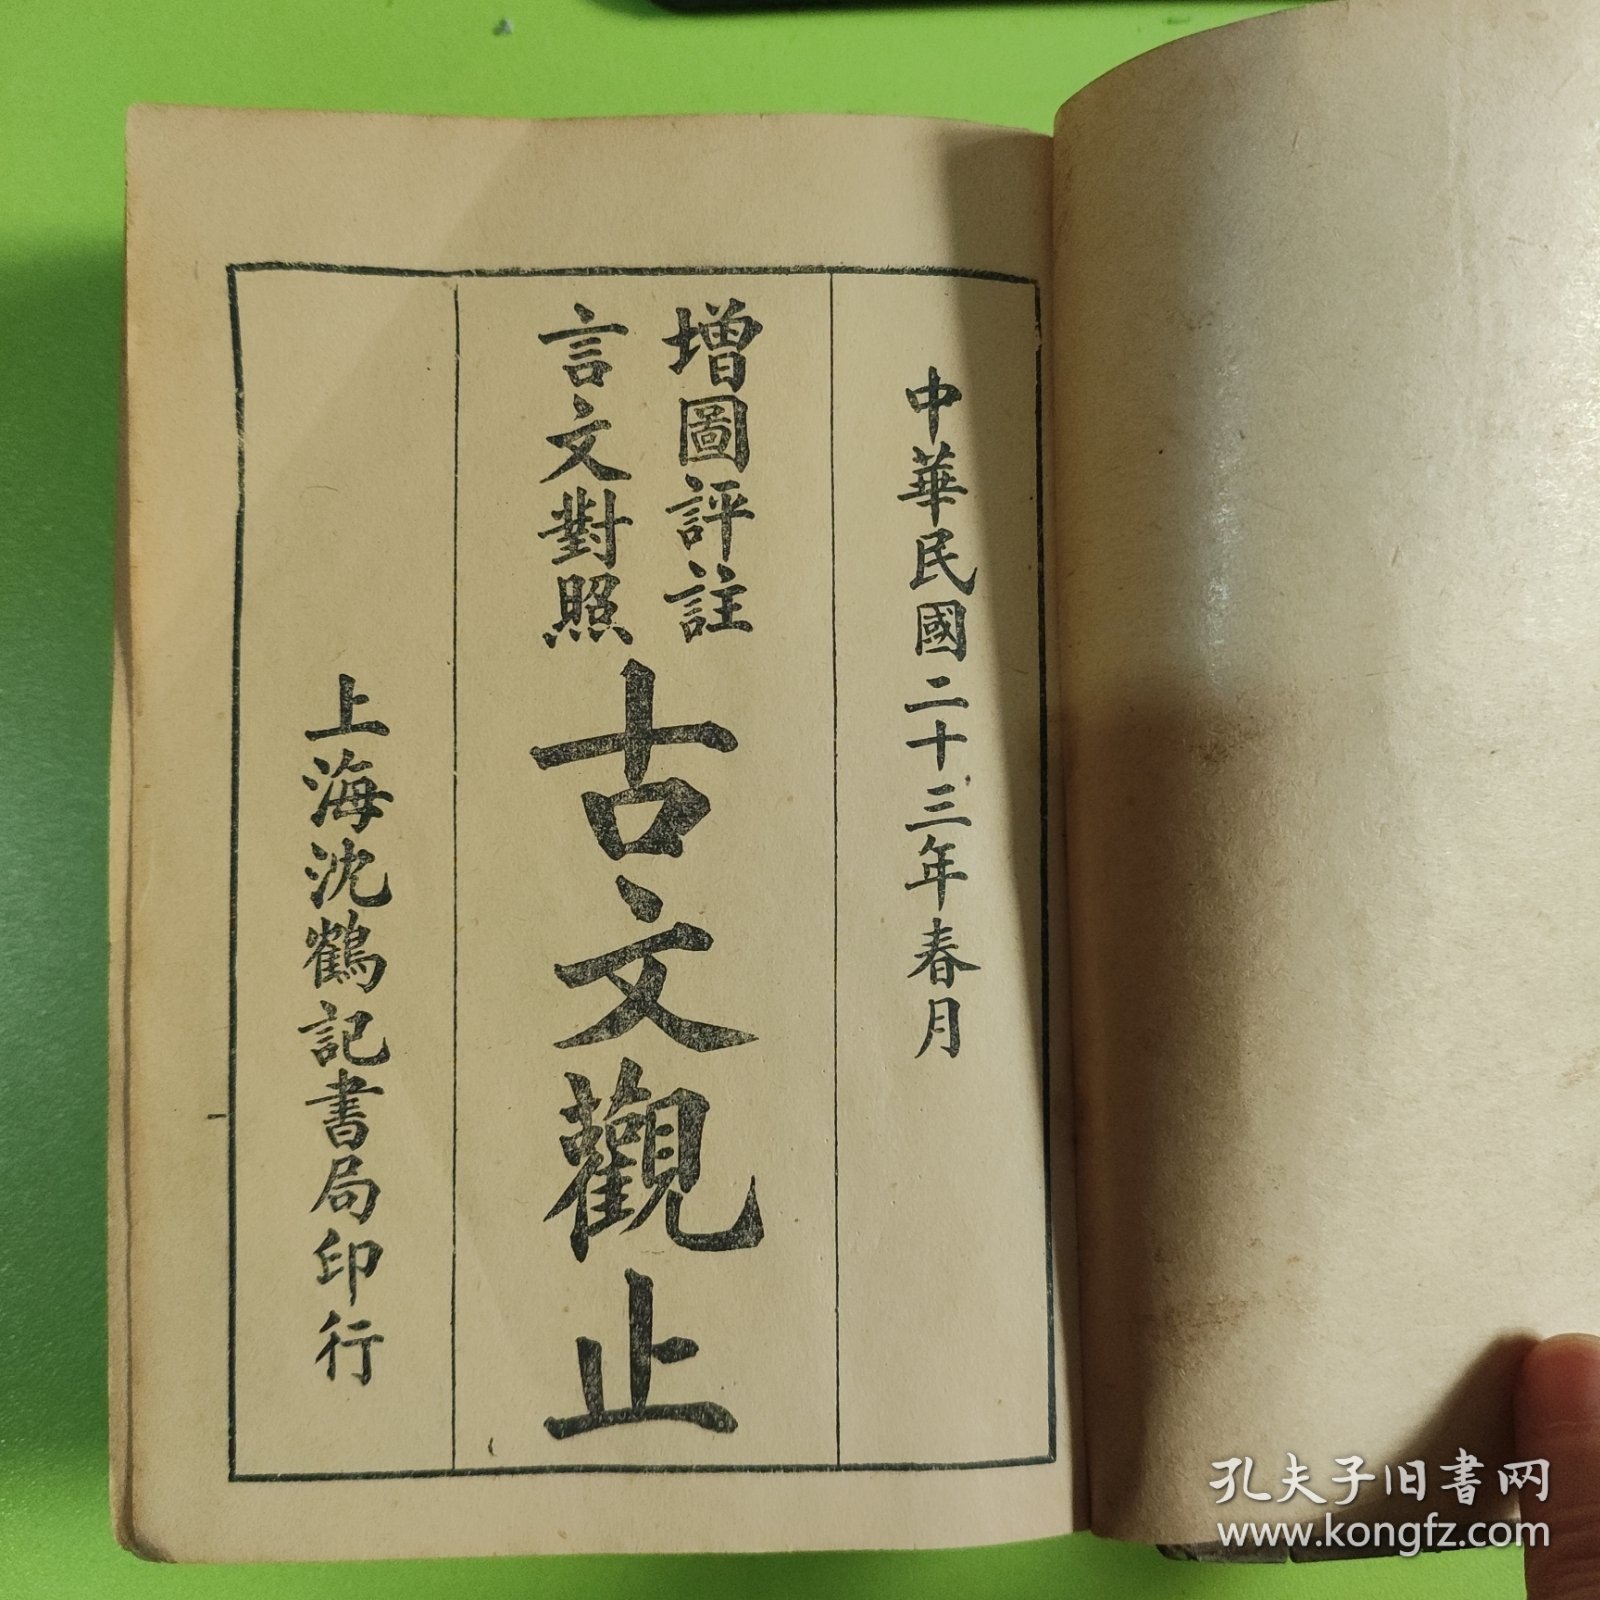 中華民國二十三年春月
增圖評註
言文對照
古文觀止
上海沈鶴記書局印行
孔夫子旧书网
www.kongfz.com